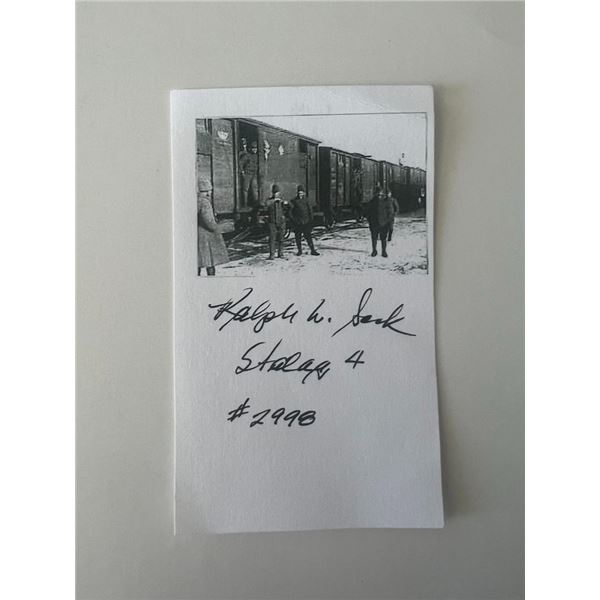 Ralph W. Sack
Stalag 4
#2998